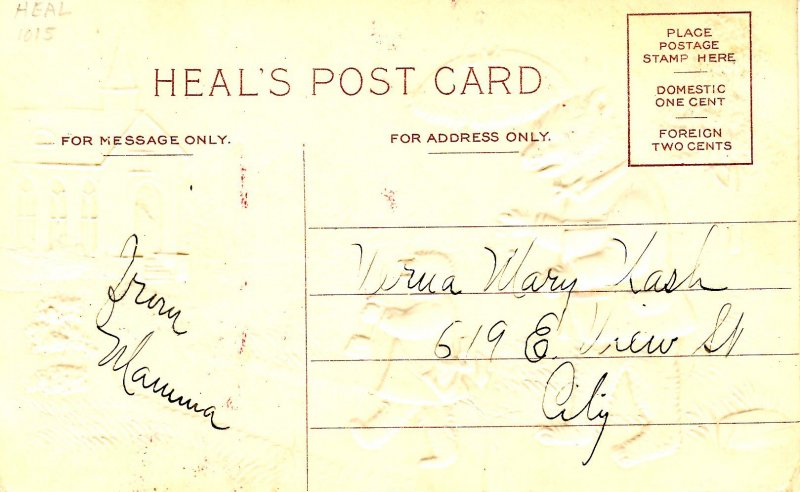 HEAL
1015
HEAL'S POST CARD
PLACE
POSTAGE
STAMP HERE
DOMESTIC
ONE CENT
FOREIGN
TWO CENTS
FOR MESSAGE ONLY.
FOR ADDRESS ONLY.
From
Mamma
Verna Mary Kash
619 E. View St
City